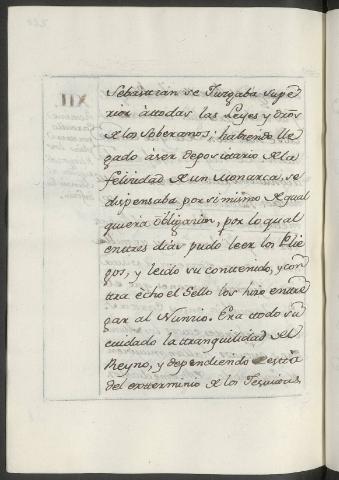 Sebastian se Juzgaba supe-
rior àttodas las Leyes y dros
de los Soberanos; habiendo lle-
gado àser depositario de la
felicidad de un Monarca, se
dispensaba por si mismo de qual
quiera obligacion, por lo qual
en ttres dias pudo leer los Plie-
gos, y leido su conttenido, y con-
tra echo el Sello los hizo enttre
gar al Nunzio. Era ttodo su
cuidado la ttranquilidad del
Reyno, y dependiendo estta
del extterminio de los Jesuittas